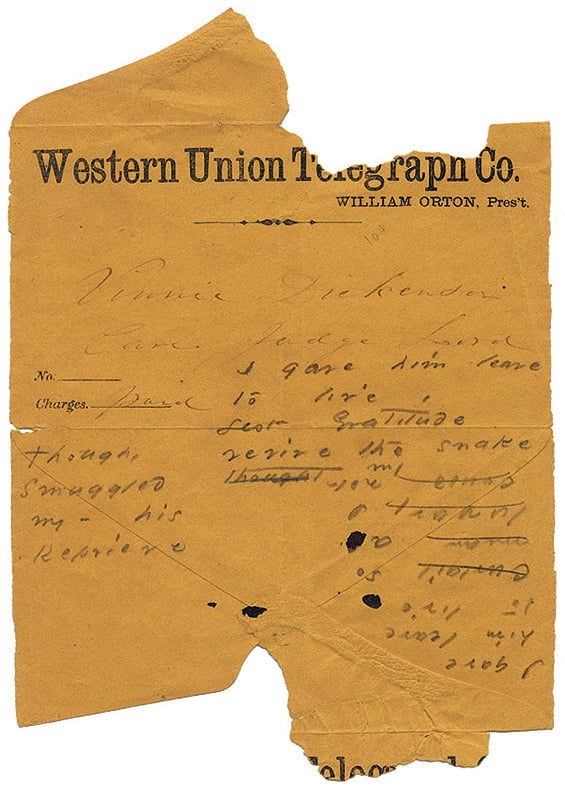 Western Union Telegraph Co.
WILLIAM ORTON, Pres't.
Vinnie Dickenson
Care Judge Lord
No.
Charges. Paid
I gave him leave
to live,
Lest Gratitude
revive the snake
Thought my
though
smuggled
my – his
Reprieve
I gave
him leave
to live
so
a